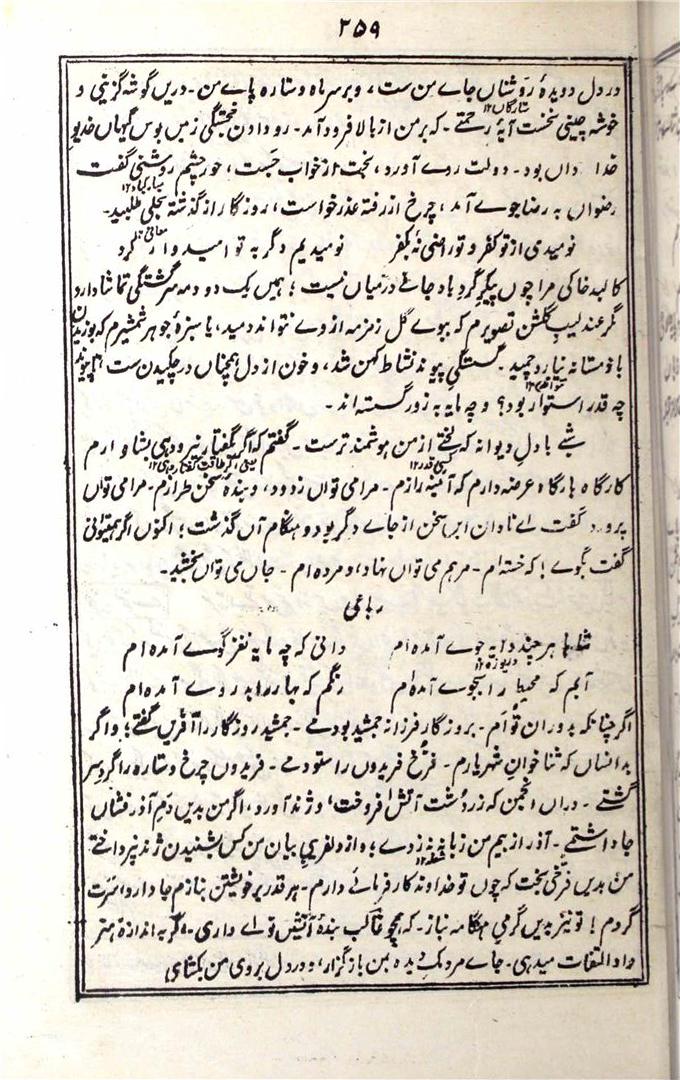 ۲۵۹
در دل و دیدهٔ روشناں جاے من ست، و بر سر ماہ و ستارہ پاے من۔ دریں گوشہ گزینی و
ستارگاں ۱۲
خوشہ چینی نخست آیۂ رحمتے۔ کہ بر من از بالا فرود آمد۔ رو دادن خجستگی زمیں بوس گیہاں خدیو
خدا داں بود۔ دولت روے آورد، بخت از خواب جست، خور بچشم روشنی گفت
رضواں بہ رضا جوے آمد، چرخ از رفتہ عذر خواست، روزگار از گذشتہ بحلی طلبید۔
معافی ۱۲
نومیدی از تو کفر و تو راضی نہ بکفر نومیدیم دگر بہ تو امیدوار کرد
کالبد خاکی مرا چوں پیکر گردباد جانے درمیاں نیست؛ ہمیں یک دو دمہ سرگشتگی تماشا دارد
گر عندلیب گلشن تصویرم کہ ببوے گل زمزمہ از وے نتواند دمید، یا سبزۂ جوہر شمشیرم کہ بوزیدن
باد مستانہ نیارد چمید۔ گسستگی پیوند نشاط کہن شد، و خون از دل ہمچناں در چکیدن ست، ہا پیوند
چہ قدر استوار بود؟ و چہ مایہ بہ زور گسستہ اند۔
شبے با دل دیوانہ کہ بختے از من ہوشمند ترست۔ گفتم کہ اگر بگفتار نیرو دہی بشناورم
یعنی اگر طاقت گفتار دہی ۱۲
کارگاہ بارگاہ عرضہ دارم کہ آئینہ رازم۔ مرا می تواں زدود، و بندۂ سخن طرازم۔ مرا می تواں
پرورد گفت اے ناداں ایں سخن از جاے دگر بود و ہنگام آں گذشت؛ اکنوں اگر ہمیتوانی
گفت بگوے؛ کہ خستہ ام۔ مرہم می تواں نہاد، و مردہ ام۔ جاں می تواں بخشید۔
رباعی
شاہا ہر چند وایہ جوے آمدہ ام دانی کہ چہ مایہ نغز گوے آمدہ ام
دریوزہ ۱۲
آبم کہ محیط را بجوے آمدہ ام رنگم کہ بہار را بروے آمدہ ام
اگر چنانکہ بدوران تو ام۔ بروزگار فرزانہ جمشید بودمے۔ جمشید روزگار را آفریں گفتے؛ و اگر
بدانساں کہ ثناخوان شہریارم۔ فرخ فریدوں را ستودمے۔ فریدوں چرخ و ستارہ را گرد سر
گشتے۔ دراں انجمن کہ زردشت آتش افروخت، و ژند آورد، اگر من بدیں دم آذر فشاں
جا داشتمے۔ آذر از بیم من زبانہ نہ زدے؛ و از دلفریبی بیان من کس بشنیدن ژند نپرداختے
شعلہ ۱۲
من بدیں فرخی بخت کہ چوں تو خداوند کارفرمائے دارم۔ ہر قدر بر خویشتن بنازم جا دارد، سرت
گردم! تو نیز بدیں گرمی ہنگامہ بناز۔ کہ ہمچو غالب بندۂ آتش نوا ے داری۔ اگر بہ اندازۂ ہنر
داد التفات میدہی۔ جاے مردمک دیدہ بمن باز گزار، و در دل بروی من بکشای